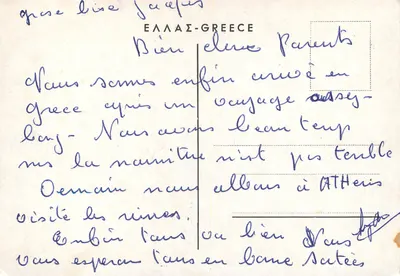 grose bise Jacques
ΕΛΛΑΣ-GREECE
Bien chers Parents
Nous somes enfin arivé en
grece après un voyage assez
long - Nous avons beau temp
mes la nouriture n'ist pas terible
Demain nous allons à ATHens
visité les ruines.
Enfin tous va bien Nous
vous esperons tous en bone santées